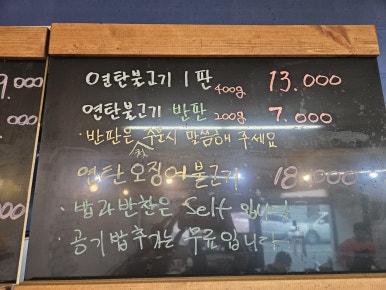 9.000
000
연탄불고기 1판 400g 13.000
연탄불고기 반판 200g 7.000
· 반판은 주문시 말씀해 주세요
연탄 오징어불고기 18.000
· 밥과반찬은 Self 입니다
· 공기밥추가는 무료입니다